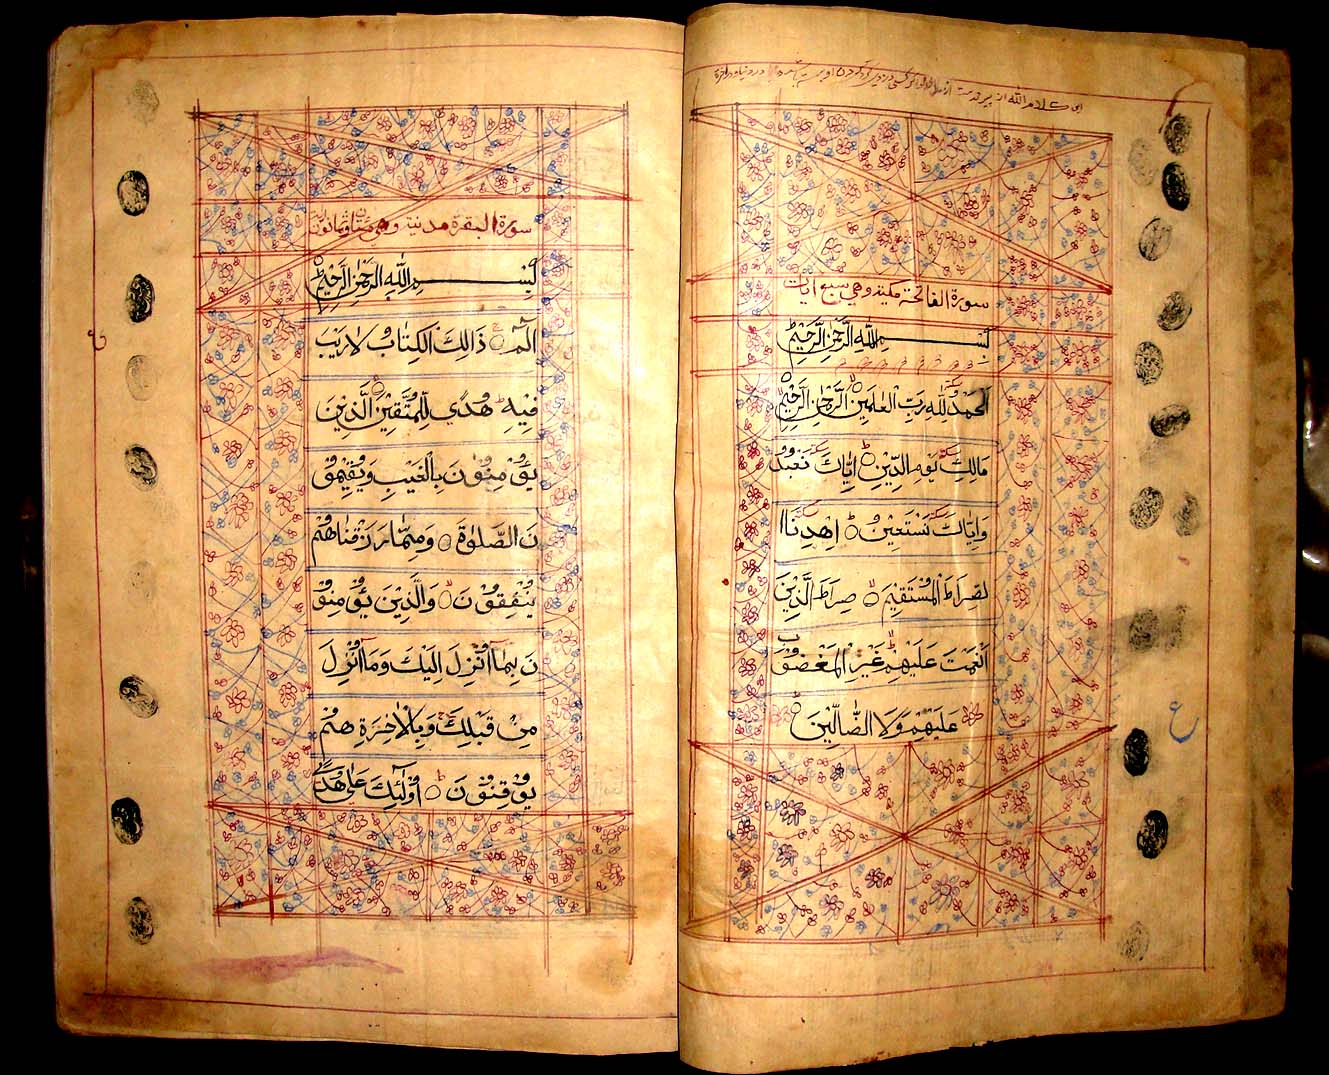 سورة الفاتحة مكية وهي سبع ايات
بِسْمِ اللهِ الرَّحْمٰنِ الرَّحِيْمِ
اَلْحَمْدُ لِلّٰهِ رَبِّ الْعٰلَمِيْنَ الرَّحْمٰنِ الرَّحِيْمِ
مَالِكِ يَوْمِ الدِّيْنِ اِيَّاكَ نَعْبُدُ
وَاِيَّاكَ نَسْتَعِيْنُ اِهْدِنَا ا
لصِّرَاطَ الْمُسْتَقِيْمَ صِرَاطَ الَّذِيْنَ
اَنْعَمْتَ عَلَيْهِمْ غَيْرِ الْمَغْضُوْبِ
عَلَيْهِمْ وَلَا الضَّالِّيْنَ
ع
سورة البقرة مدنية وهي
بِسْمِ اللهِ الرَّحْمٰنِ الرَّحِيْمِ
الٓمّٓ ذَالِكَ الْكِتَابُ لَارَيْبَ
فِيْهِ هُدًى لِلْمُتَّقِيْنَ الَّذِيْنَ
يُؤْمِنُوْنَ بِالْغَيْبِ وَيُقِيْمُوْ
نَ الصَّلٰوةَ وَمِمَّا رَزَقْنَاهُمْ
يُنْفِقُوْنَ وَالَّذِيْنَ يُؤْمِنُوْ
نَ بِمَا اُنْزِلَ اِلَيْكَ وَمَا اُنْزِلَ
مِنْ قَبْلِكَ وَبِالْاٰخِرَةِ هُمْ
يُوْقِنُوْنَ اُولٰٓئِكَ عَلٰى هُدًى